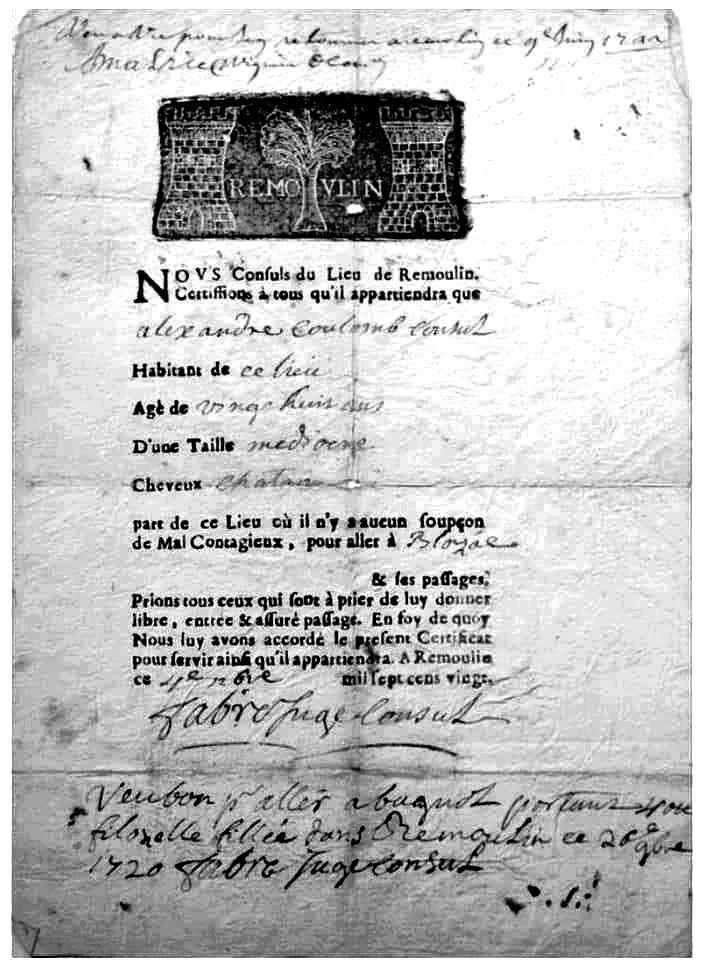 REMOVLIN
NOVS Consuls du Lieu de Remoulin.
Certiffions à tous qu'il appartiendra que
alexandre coulomb consul
Habitant de ce lieu
Agè de vingt huit ans
D'une Taille mediocre
Cheveux chatain
part de ce Lieu où il n'y a aucun soupçon
de Mal Contagieux, pour aller à
& ses passages,
Prions tous ceux qui sont à prier de luy donner
libre, entrée & assuré passage. En foy de quoy
Nous luy avons accordé le present Certificat
pour servir ainsi qu'il appartiendra. A Remoulin
ce 4e mil sept cens vingt.
fabre Juge Consul
Veu bon pr aller a portant
filozelle fillée dans Remoulin ce 26e
1720 fabre Juge consul